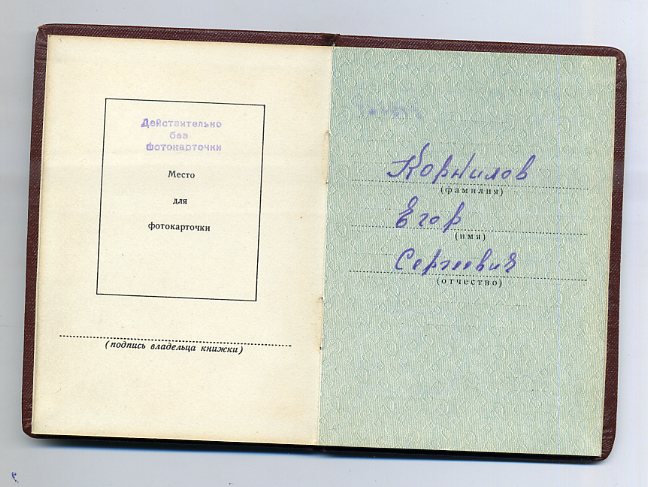 Действительно
без
фотокарточки
Место
для
фотокарточки
(подпись владельца книжки)
Корнилов
(фамилия)
Егор
(имя)
Сергеевич
(отчество)